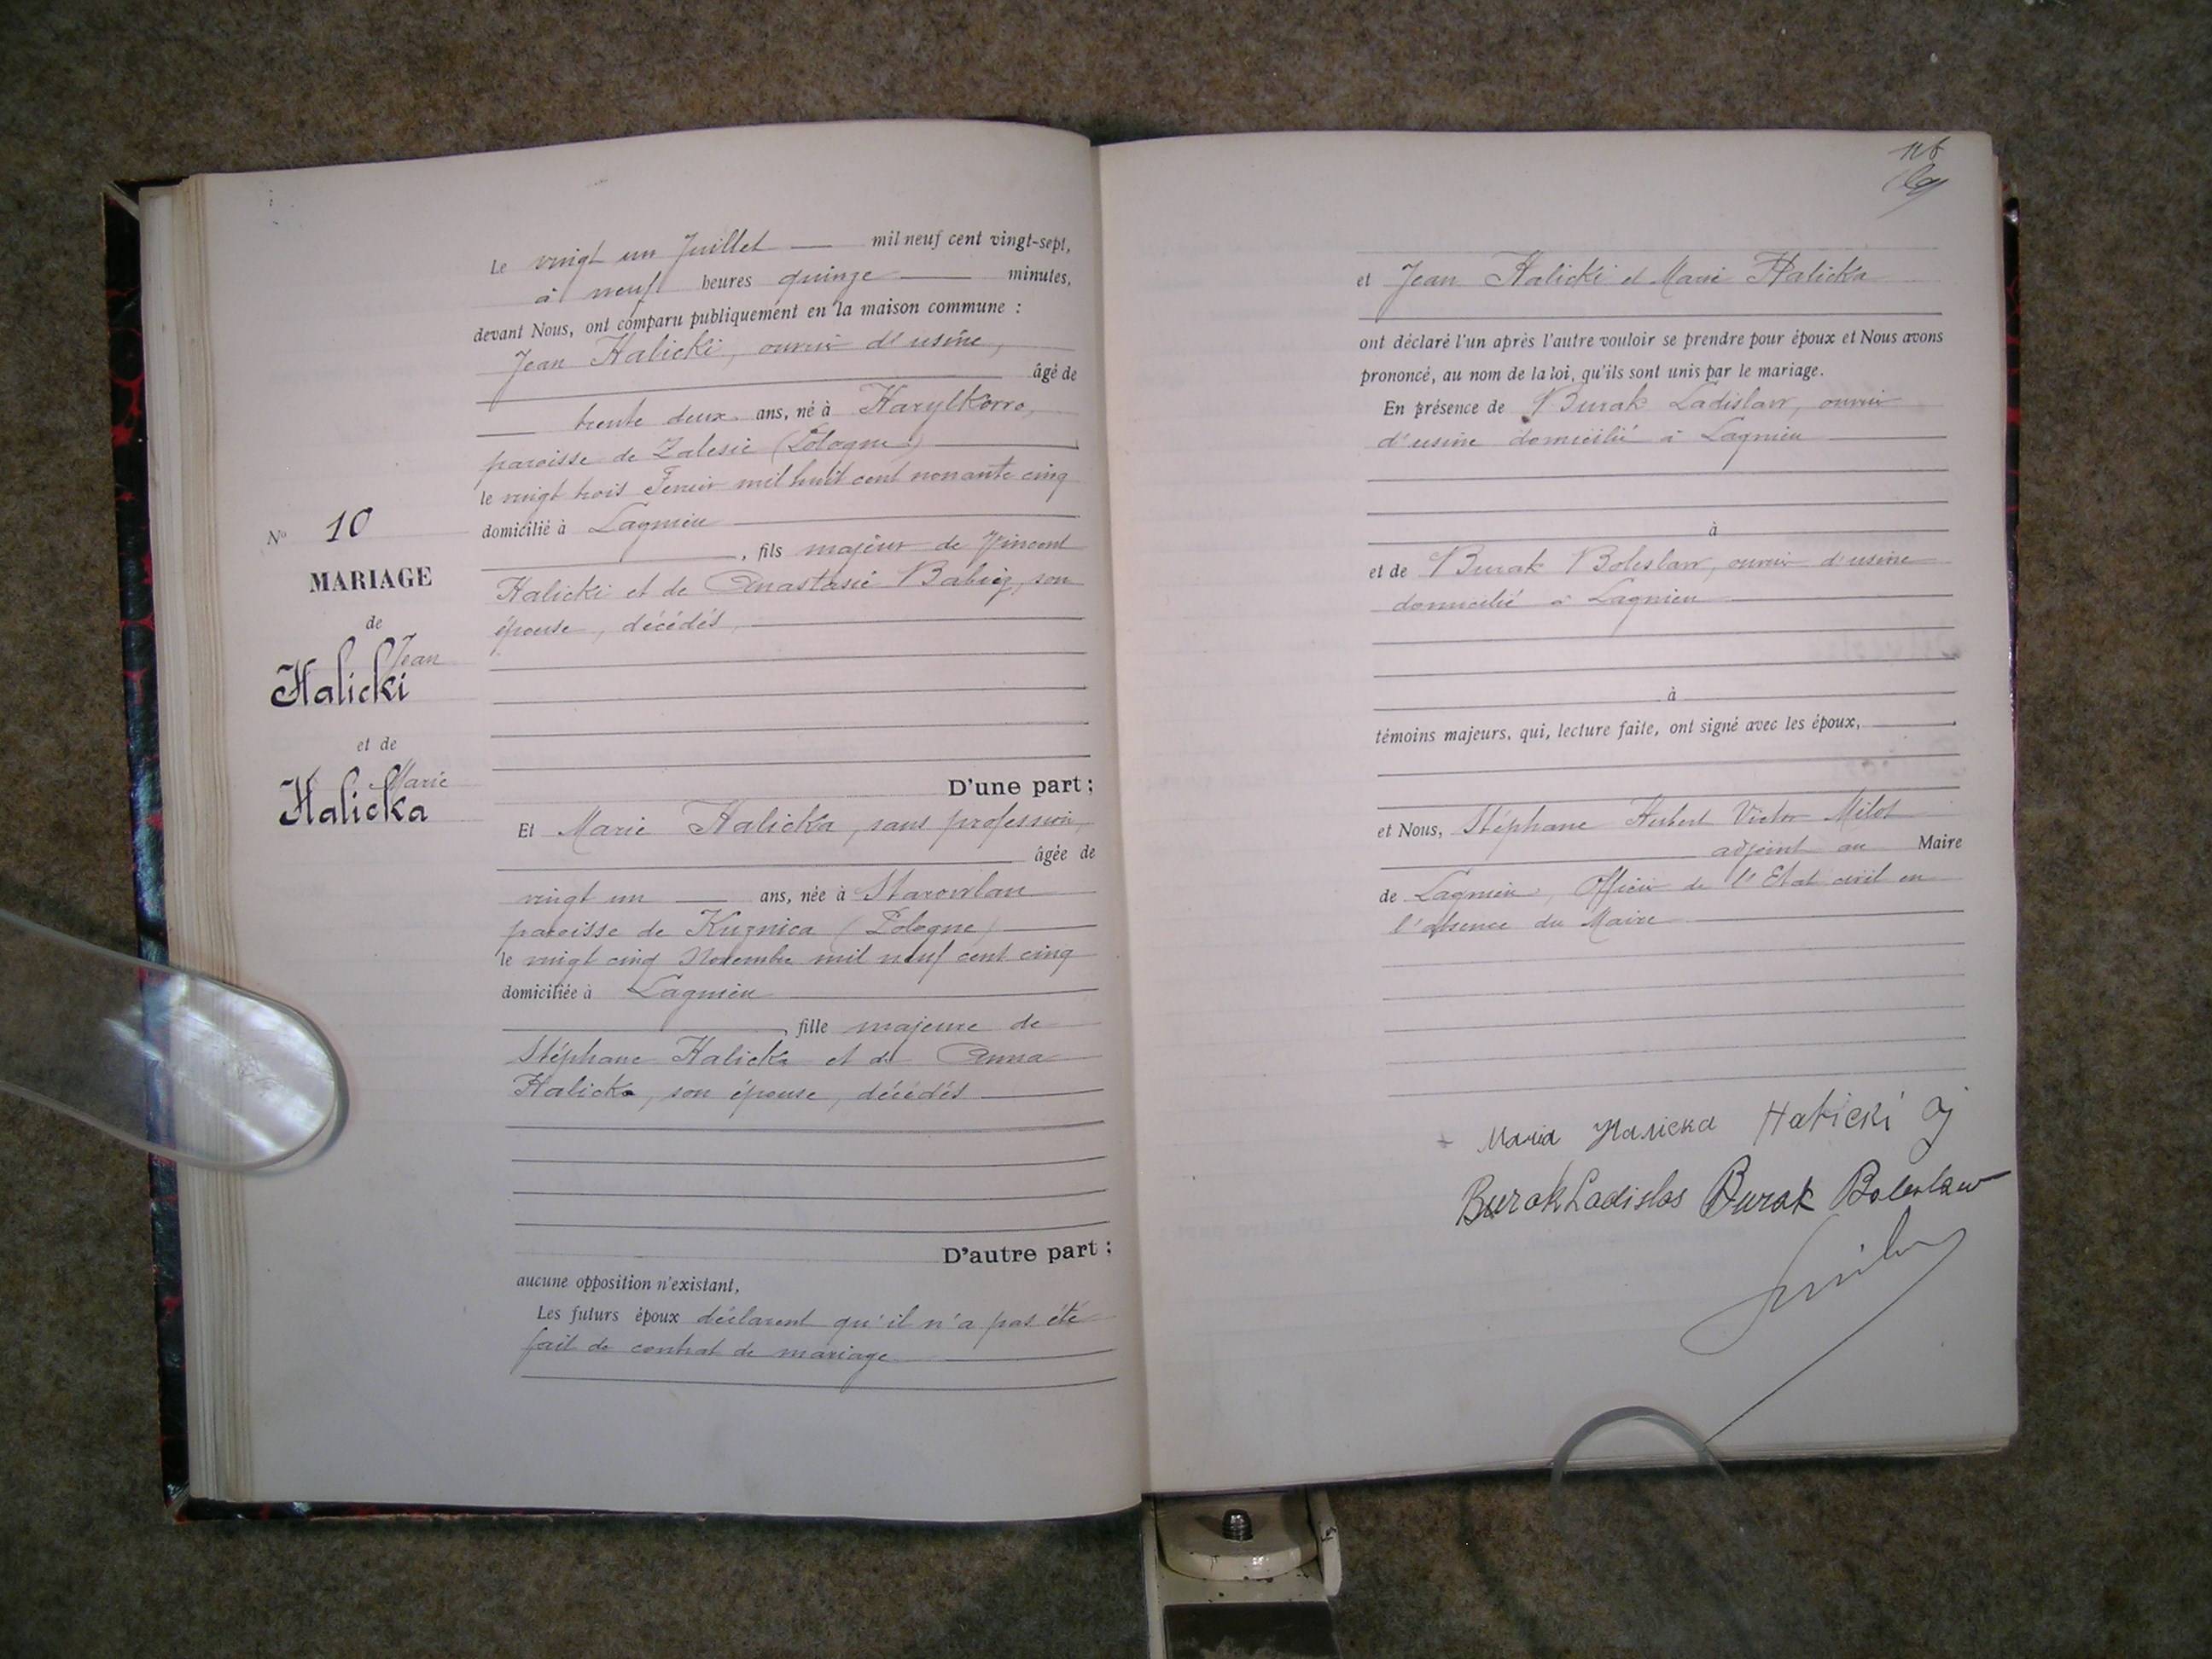 Nº 10
MARIAGE
de
Jean
Halicki
et de
Marie
Halicka
Le vingt un Juillet mil neuf cent vingt-sept,
à neuf heures quinze minutes,
devant Nous, ont comparu publiquement en la maison commune :
Jean Halicki, ouvrier d'usine,
âgé de
trente deux ans, né à Harylkorro,
paroisse de Zalesie (Pologne)
le vingt trois Fevrier mil huit cent nonante cinq
domicilié à Lagnieu
, fils majeur de Vincent
Halicki et de Anastasie Babicz, son
épouse, décédés,
D'une part ;
Et Marie Halicka, sans profession,
âgée de
vingt un ans, née à Starowlan
paroisse de Kuznica (Pologne)
le vingt cinq Novembre mil neuf cent cinq
domiciliée à Lagnieu
, fille majeure de
Stéphane Halicka et de Anna
Halicka, son épouse, décédés
D'autre part ;
aucune opposition n'existant,
Les futurs époux déclarent qu'il n'a pas été
fait de contrat de mariage
116
et Jean Halicki et Marie Halicka
ont déclaré l'un après l'autre vouloir se prendre pour époux et Nous avons
prononcé, au nom de la loi, qu'ils sont unis par le mariage.
En présence de Burak Ladislaw, ouvrier
d'usine domicilié à Lagnieu
à
et de Burak Boleslaw, ouvrier d'usine
domicilié à Lagnieu
à
témoins majeurs, qui, lecture faite, ont signé avec les époux,
et Nous, Stéphane Hubert Victor Milot
adjoint au Maire
de Lagnieu, Officier de l'Etat civil en
l'absence du Maire
Maria Halicka Halicki
Burak Ladislas Burak Boleslaw